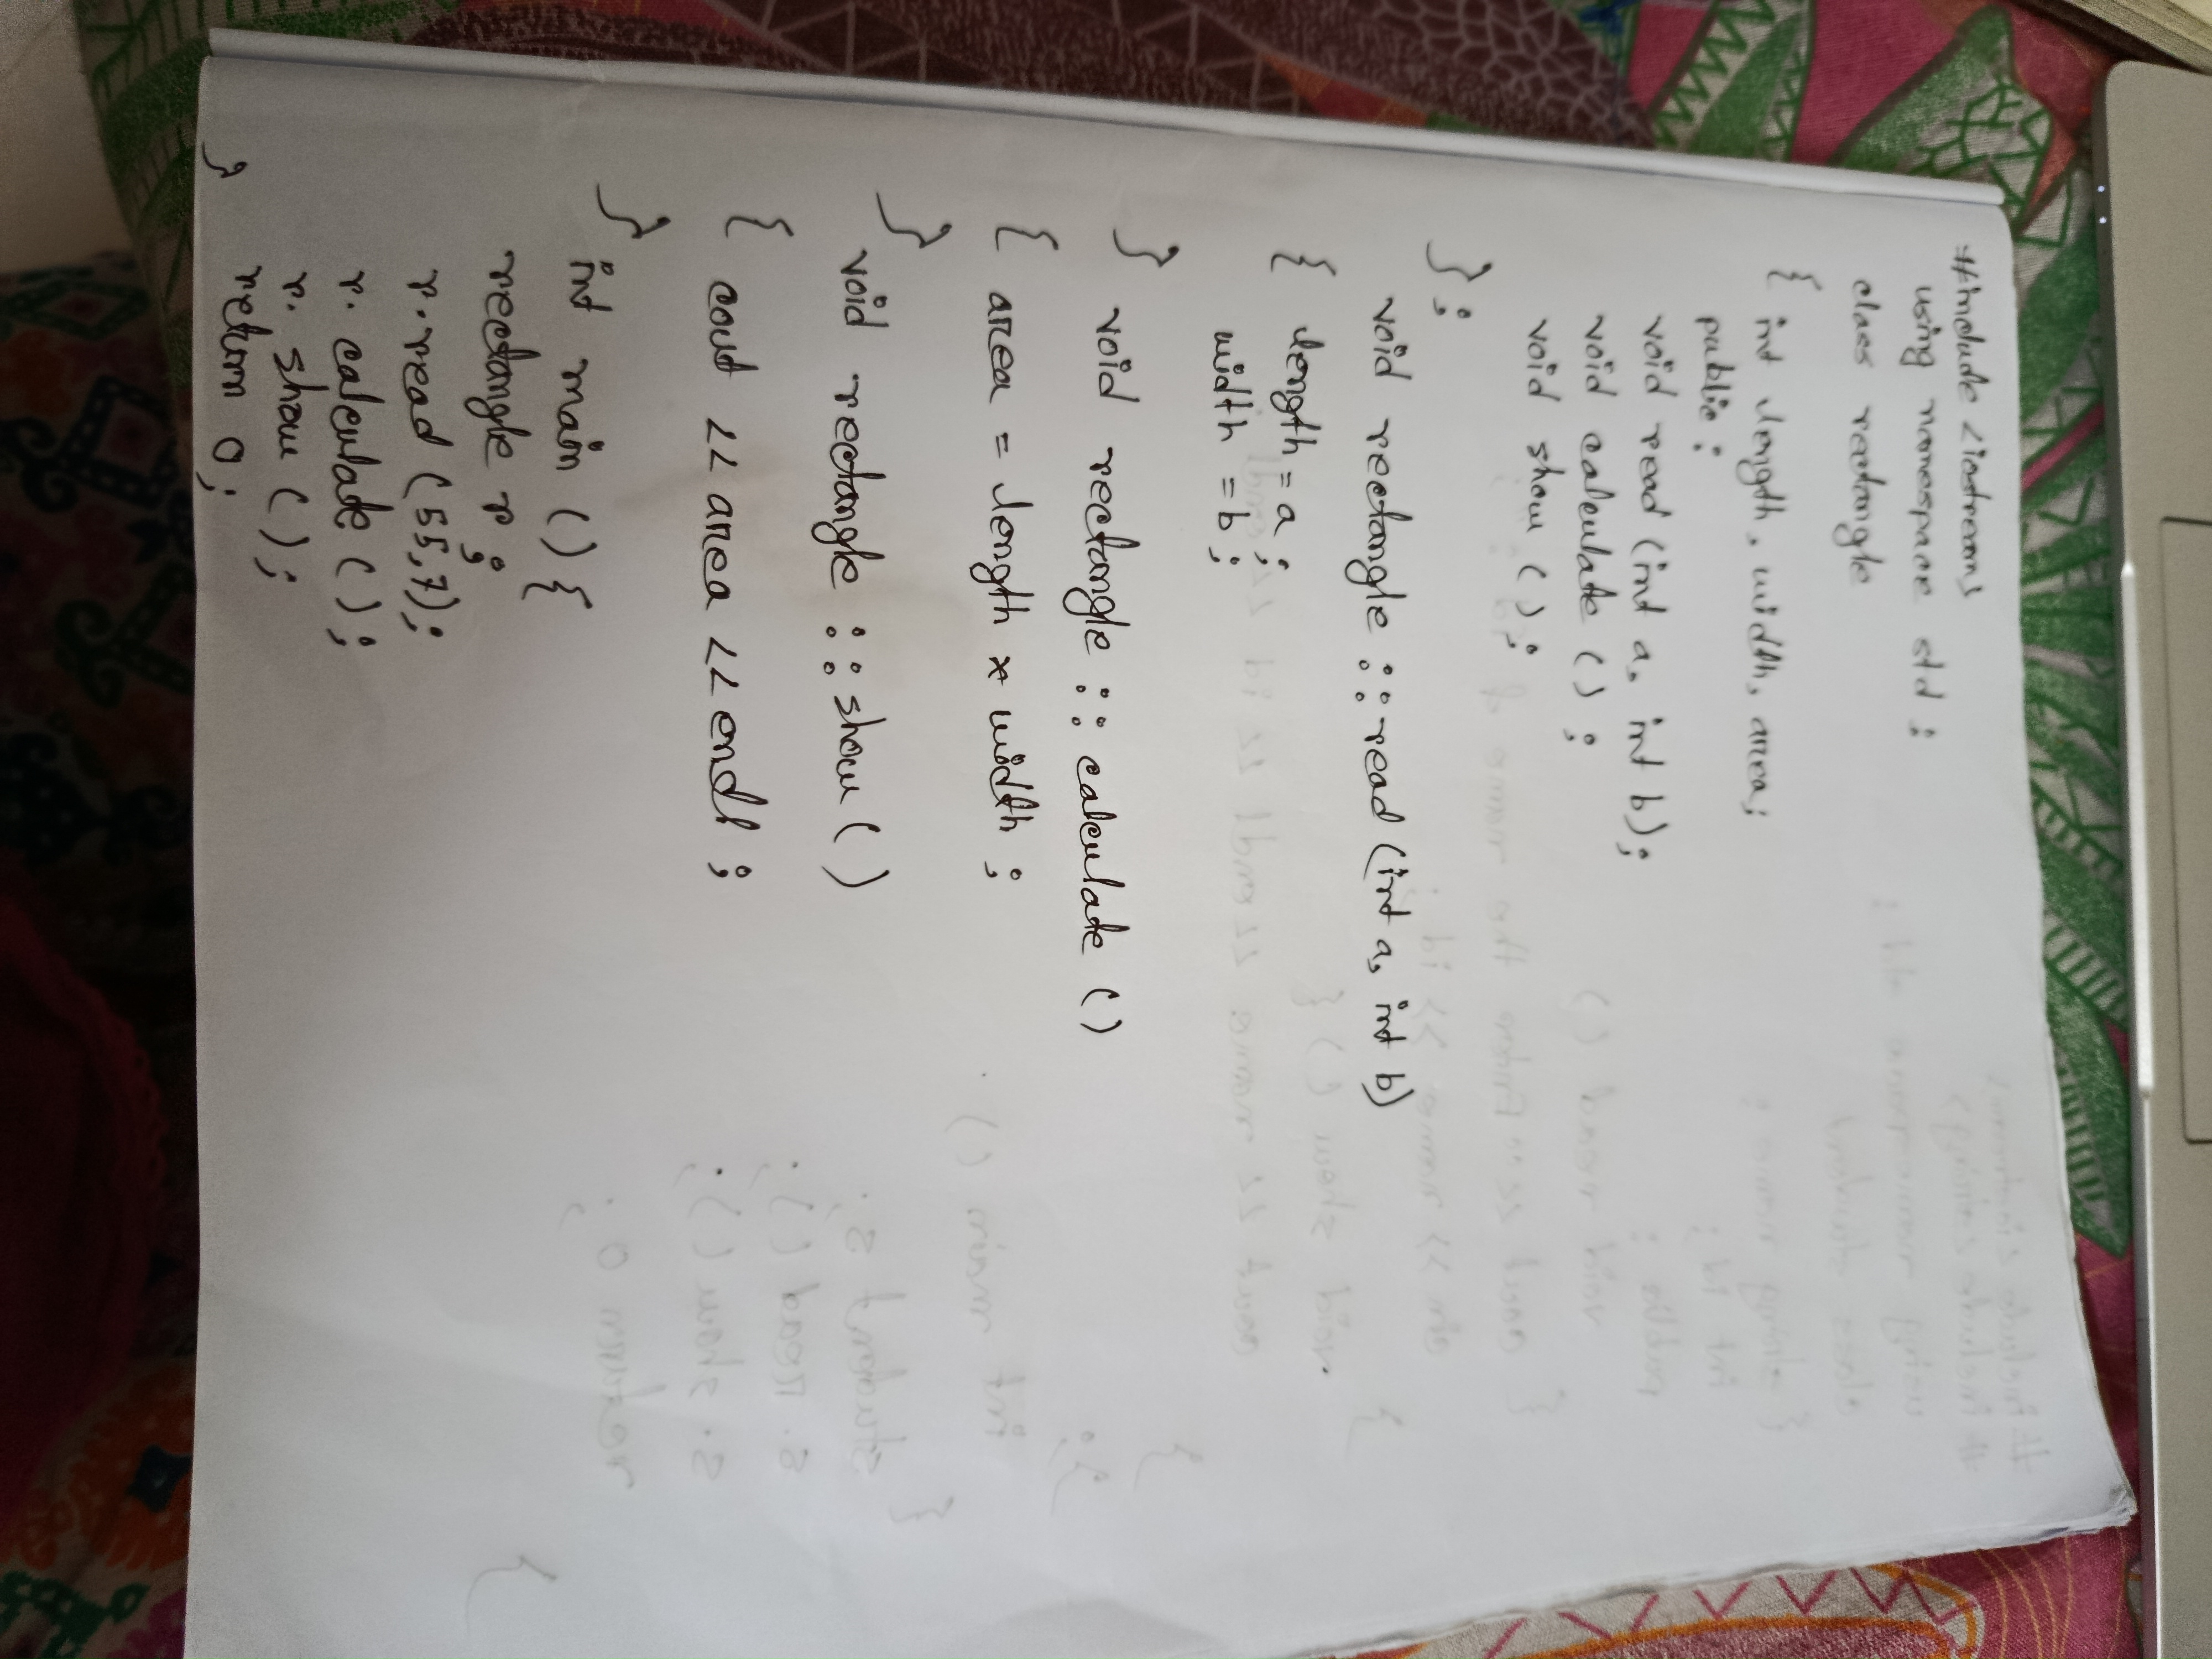 #include <iostream>
using namespace std ;
class rectangle
{ int length, width, area;
public :
void read (int a, int b);
void calculate () ;
void show () ;
} ;
void rectangle :: read (int a, int b)
{ length = a ;
width = b ;
}
void rectangle :: calculate ()
{ area = length * width ;
}
void rectangle :: show ()
{ cout << area << endl ;
}
int main () {
rectangle r ;
r. read (55,7);
r. calculate () ;
r. show () ;
return 0;
}